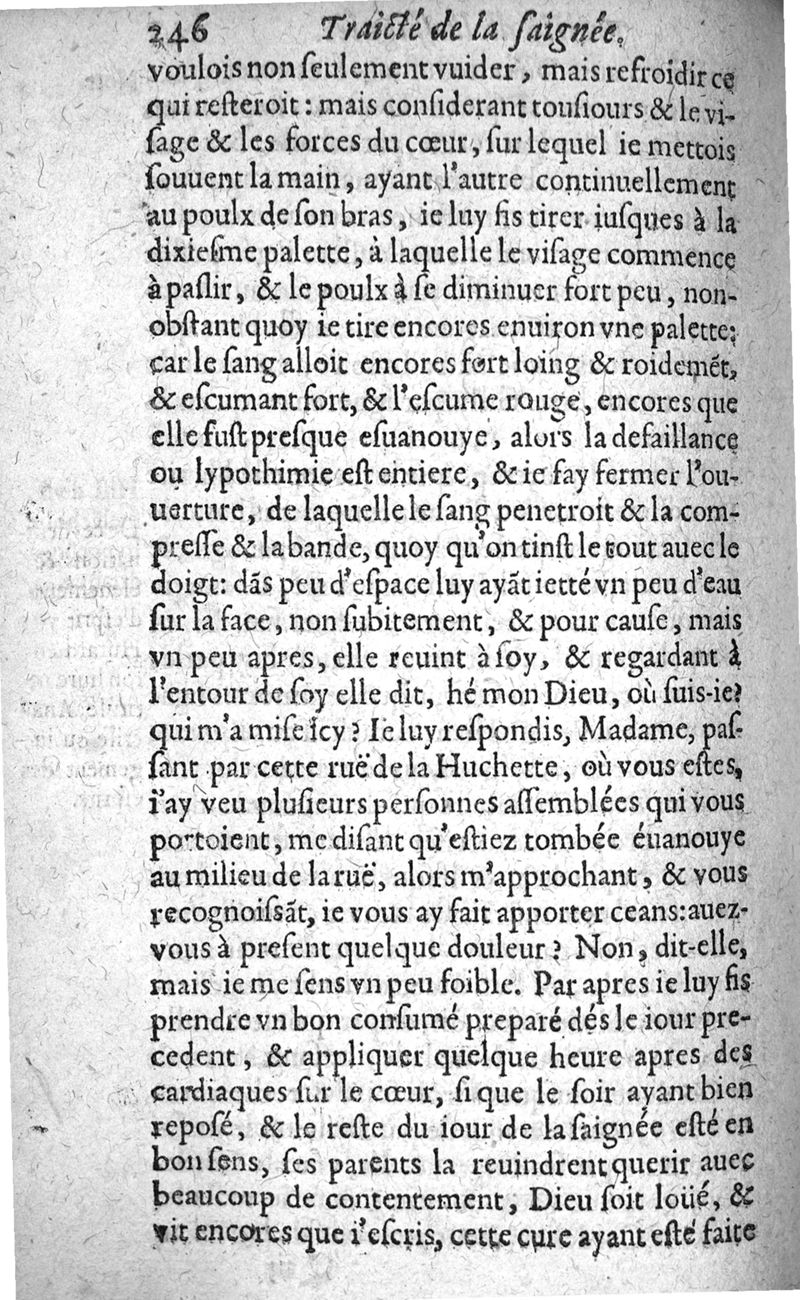 246 Traicté de la ſaignée.
voulois non ſeulement vuider, mais refroidir ce
qui reſteroit : mais conſiderant touſiours & le vi-
ſage & les forces du cœur, ſur lequel ie mettois
ſouuent la main, ayant l'autre continuellement
au poulx de ſon bras, ie luy fis tirer iuſques à la
dixieſme palette, à laquelle le viſage commence
à paſlir, & le poulx à ſe diminuer fort peu, non-
obſtant quoy ie tire encores enuiron vne palette:
car le ſang alloit encores fort loing & roidemẽt,
& eſcumant fort, & l'eſcume rouge, encores que
elle fuſt preſque eſuanouye, alors la defaillance
ou lypothimie eſt entiere, & ie fay fermer l'ou-
uerture, de laquelle le ſang penetroit & la com-
preſſe & la bande, quoy qu'on tinſt le tout auec le
doigt: dãs peu d'eſpace luy ayãt ietté vn peu d'eau
ſur la face, non ſubitement, & pour cauſe, mais
vn peu apres, elle reuint à ſoy, & regardant à
l'entour de ſoy elle dit, hé mon Dieu, où ſuis-ie?
qui m'a miſe icy ? Ie luy reſpondis, Madame, paſ-
ſant par cette ruë de la Huchette, où vous eſtes,
i'ay veu pluſieurs perſonnes aſſemblées qui vous
portoient, me diſant qu'eſtiez tombée éuanouye
au milieu de la ruë, alors m'approchant, & vous
recognoiſsãt, ie vous ay fait apporter ceans: auez-
vous à preſent quelque douleur ? Non, dit-elle,
mais ie me ſens vn peu foible. Par apres ie luy fis
prendre vn bon conſumé preparé dés le iour pre-
cedent, & appliquer quelque heure apres des
cardiaques ſur le cœur, ſi que le ſoir ayant bien
repoſé, & le reſte du iour de la ſaignée eſté en
bon ſens, ſes parents la reuindrent querir auec
beaucoup de contentement, Dieu ſoit loüé, &
vit encores que i'eſcris, cette cure ayant eſté faite